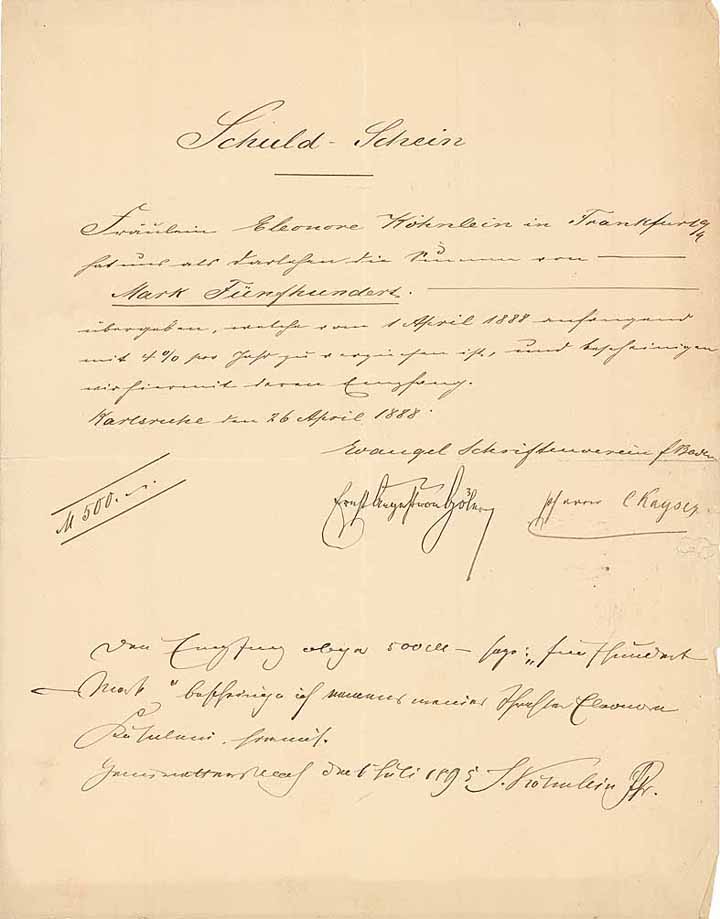 Schuld - Schein
Fräulein Eleonore Köhnlein in Frankfurt a/M
hat uns als Darlehen die Summe von
Mark Fünfhundert.
übergeben, welche vom 1 April 1888 anfangend
mit 4% per Jahr zu verzinsen ist, und bescheinigen
wir hiermit deren Empfang.
Karlsruhe den 26 April 1888.
Evangel Schriftenverein f. Baden
M 500.
Ernst August von Göler Pfarrer C Kayser
Den Empfang obiger 500 M – sage: „fünfhundert
Mark" bescheinige ich namens meiner Tochter Eleonore
Köhnlein hiermit.
den 1 Juli 1895 J. Köhnlein Pfr.